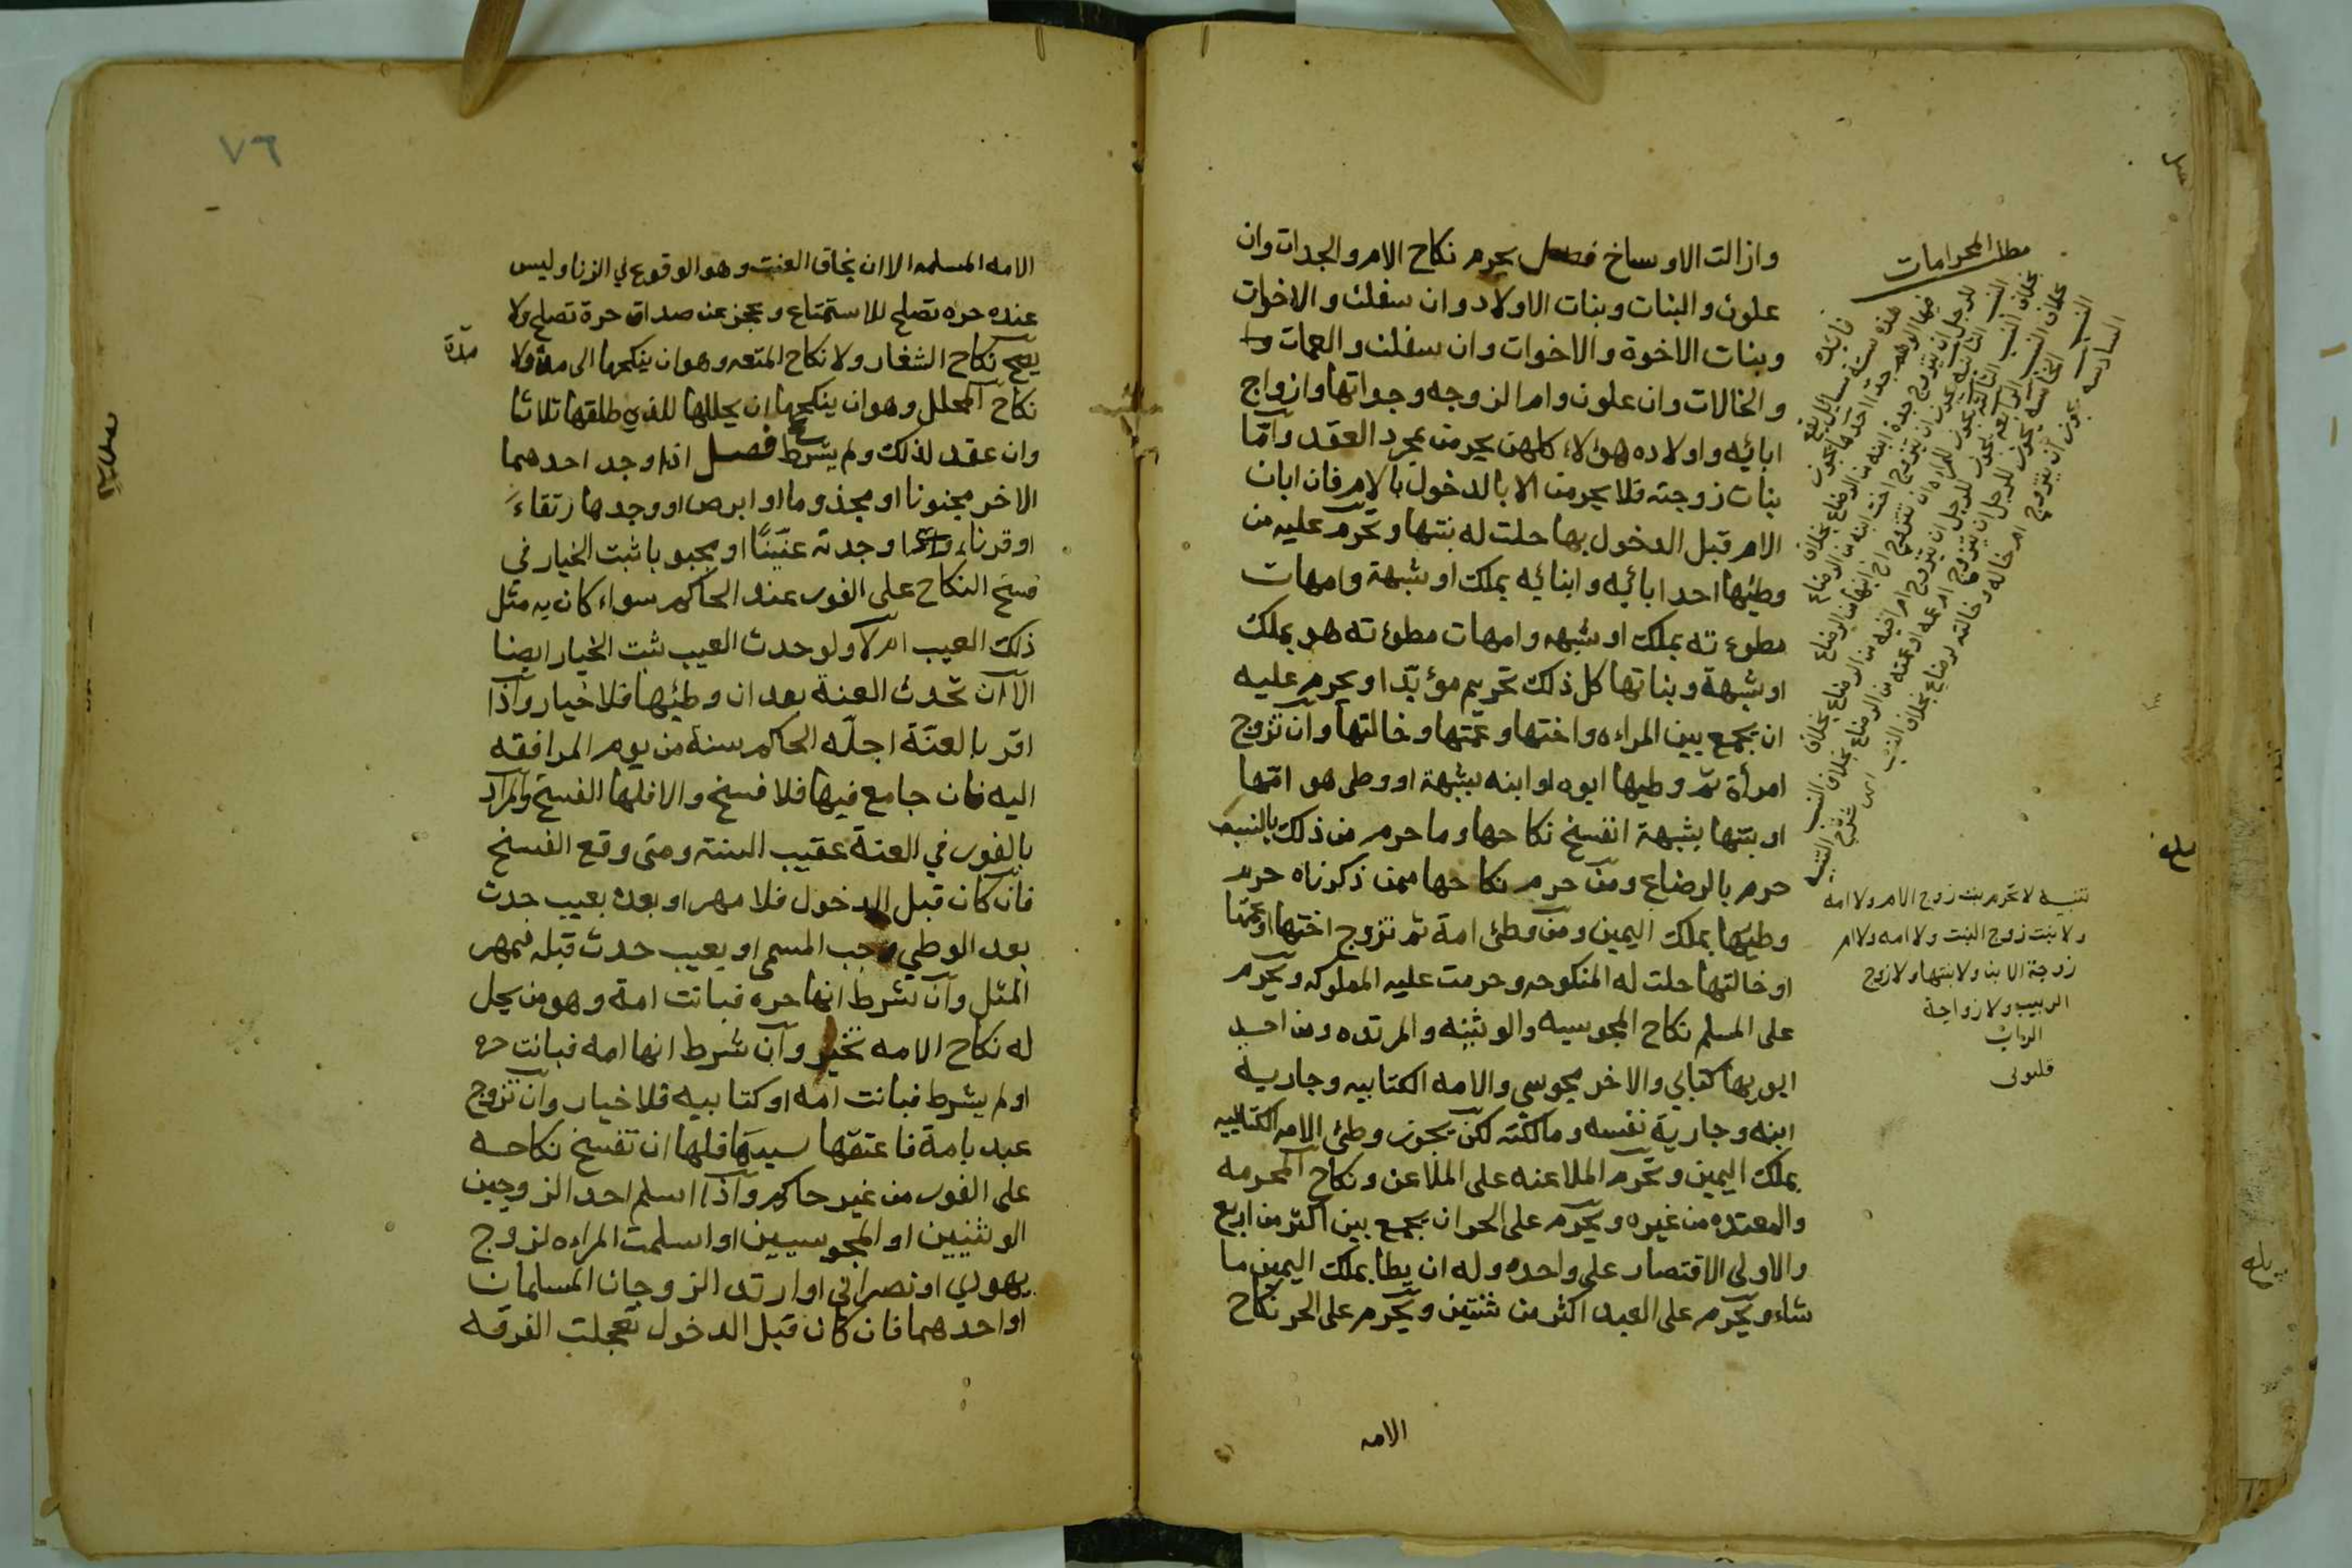 وازالت الاوساخ فصل يحرم نكاح الام والجدات وان
علون والبنات وبنات الاولاد وان سفلن والاخوات
وبنات الاخوة والاخوات وان سفلن والعمات
والخالات وان علون وام الزوجه وجداتها وازواج
ابائه واولاده هؤلاء كلهن يحرمن بمجرد العقد وامّا
بنات زوجته فلا يحرمن الا بالدخول بالام فان ابان
الام قبل الدخول بها حلت له بنتها ويحرم عليه من
وطئها احد ابائه وابنائه بملك او شبهة وامهات
مطوءته بملك او شبهه وامهات مطوءته هو بملك
او شبهة وبناتها كل ذلك تحريم مؤبّدا ويحرم عليه
ان يجمع بين المراءه واختها وعمّتها وخالتها وان تزوج
امرأة ثم وطيها ابوه او ابنه بشبهة او وطى هو امّها
او بنتها بشبهة انفسخ نكاحها وما حرم من ذلك بالنسب
حرم بالرضاع ومن حرم نكاحها ممن ذكرناه حرم
وطيها بملك اليمين ومن وطئ امة ثم تزوج اختها او عمّتها
او خالتها حلت له المنكوحه وحرمت عليه المملوكه ويحرم
على المسلم نكاح المجوسيه والوثنيه والمرتده ومن احد
ابويها كتابي والاخر مجوسي والامه الكتابيه وجارية
ابنه وجارية نفسه ومالكته لكن يجوز وطئ الامه الكتابيه
بملك اليمين ويحرم الملاعنه على الملاعن ونكاح المحرمه
والمعتده من غيره ويحرم على الحر ان يجمع بين اكثر من اربع
والاولى الاقتصار على واحده وله ان يطا بملك اليمين ما
شاء ويحرم على العبد اكثر من ثنتين ويحرم على الحر نكاح
الامه
فايده
هذه ستة مسايل يقع
للرجل ان يتزوج جدة ابنه من الرضاع بخلاف
النسب الثانيه يجوز ان يتزوج اخت ابنه من الرضاع
بخلاف النسب الثالثه يجوز للمراه ان تتزوج اخ ابنها من الرضاع
بخلاف النسب الرابعه يجوز للرجل ان يتزوج ام اخيه من الرضاع بخلاف
النسب الخامسه يجوز للرجل ان يتزوج ام عمه او عمته من الرضاع بخلاف النسب
السادسه يجوز ان يتزوج ام خاله وخالته رضاع بخلاف النسب
تنبيه لا تحرم بنت زوج الام ولا امه
ولا بنت زوج البنت ولا امه ولا ام
زوجة الابن ولا بنتها ولا زوج
الربيب ولا زواجة
الراب
قليوبى
٧٦
الامه المسلمه الا ان يخاف العنت وهو الوقوع في الزنا وليس
عنده حره تصلح للاستمتاع وعجز عن صداق حرة تصلح ولا
يصح نكاح الشغار ولا نكاح المتعه وهو ان ينكحها الى مدة ولا
مدّة
نكاح المحلل وهو ان ينكحها ان يحللها للذي طلقها ثلاثا
وان عقد لذلك ولم يشرط صح فصل اذا وجد احدهما
الاخر مجنونا او مجذوما او ابرص او وجدها رتقاء
او قرناء وجدته عنّينًا او مجبوبا ثبت الخيار في
فسخ النكاح على الفور عند الحاكم سواء كان به مثل
ذلك العيب ام لا ولو حدث العيب ثبت الخيار ايضا
الا ان تحدث العنة بعد ان وطئها فلا خيار واذا
اقر بالعنّة اجلّه الحاكم سنة من يوم المرافقه
اليه فان جامع فيها فلا فسخ والا فلها الفسخ والمراد
بالفور في العنة عقيب السنة ومتى وقع الفسخ
فان كان قبل الدخول فلا مهر او بعده بعيب حدث
بعد الوطي وجب المسمى او بعيب حدث قبله فمهر
المثل وان شرط انها حره فبانت امة وهو من يحل
له نكاح الامه تخير وان شرط انها امه فبانت حره
او لم يشرط فبانت امه او كتابيه فلا خيار وان تزوج
عبد بامة فاعتقها سيدها فلها ان تفسخ نكاحه
على الفور من غير حاكم واذا اسلم احد الزوجين
الوثنيين او المجوسيين او اسلمت المراءه لزوج
يهودي او نصراني او ارتد الزوجان المسلمان
او احدهما فان كان قبل الدخول تعجلت الفرقه